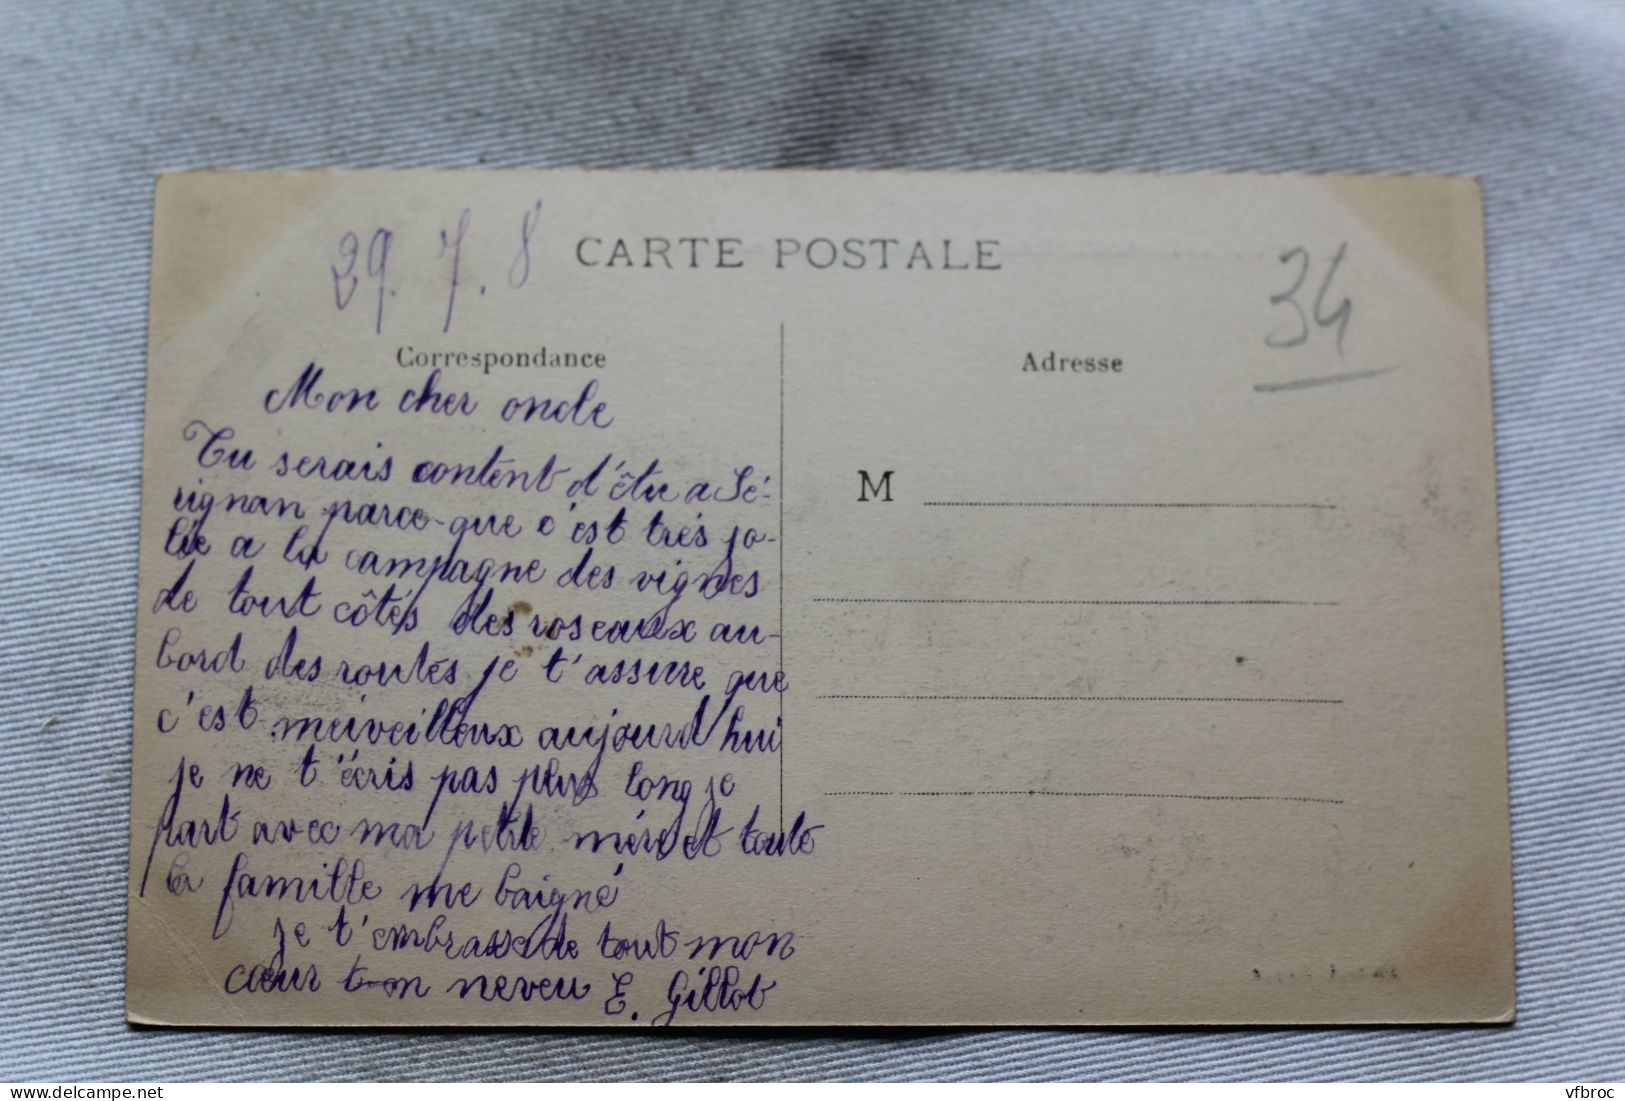 29.7.8
CARTE POSTALE
34
Correspondance
Adresse
Mon cher oncle
Tu serais content d'être a Sé-
rignan parce-que c'est très jo-
lie a la campagne des vignes
de tout côtés des roseaux au-
bord des routes je t'assure que
c'est merveilleux aujourd'hui
je ne t'écris pas plus long je
part avec ma petite mère et toute
la famille me baigné
je t'embrasse de tout mon
cœur ton neveu E. Gillot
M
vfbroc